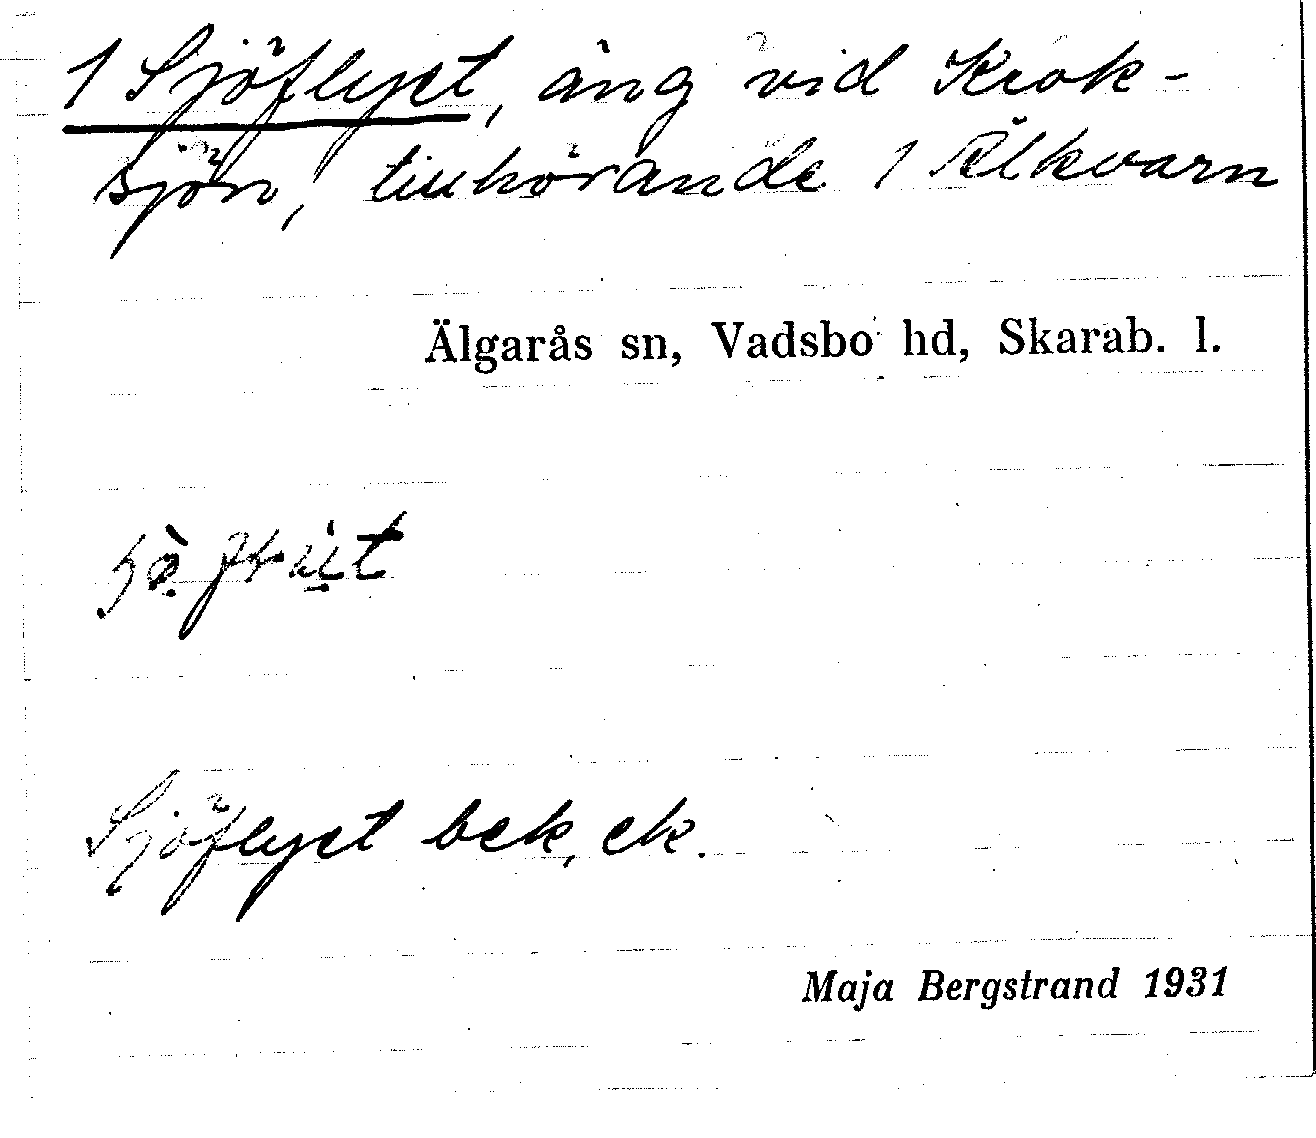 1 Sjöflyet, äng vid Krok-
sjön, tillhörande 1 Älkvarn
Älgarås sn, Vadsbo hd, Skarab. l.
Sjöflyet bek, ek.
Maja Bergstrand 1931